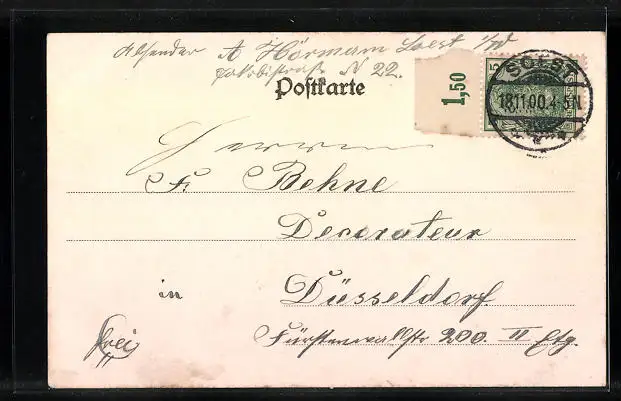 Absender A Hörmann Soest i/W
Jakobistraße N 22.
Postkarte
1,50
5
SOEST
18.11.00.4-5N
Herrn
F. Behne
Decorateur
in Düsseldorf
Fürstenwallstr 200. II Etg.
frei